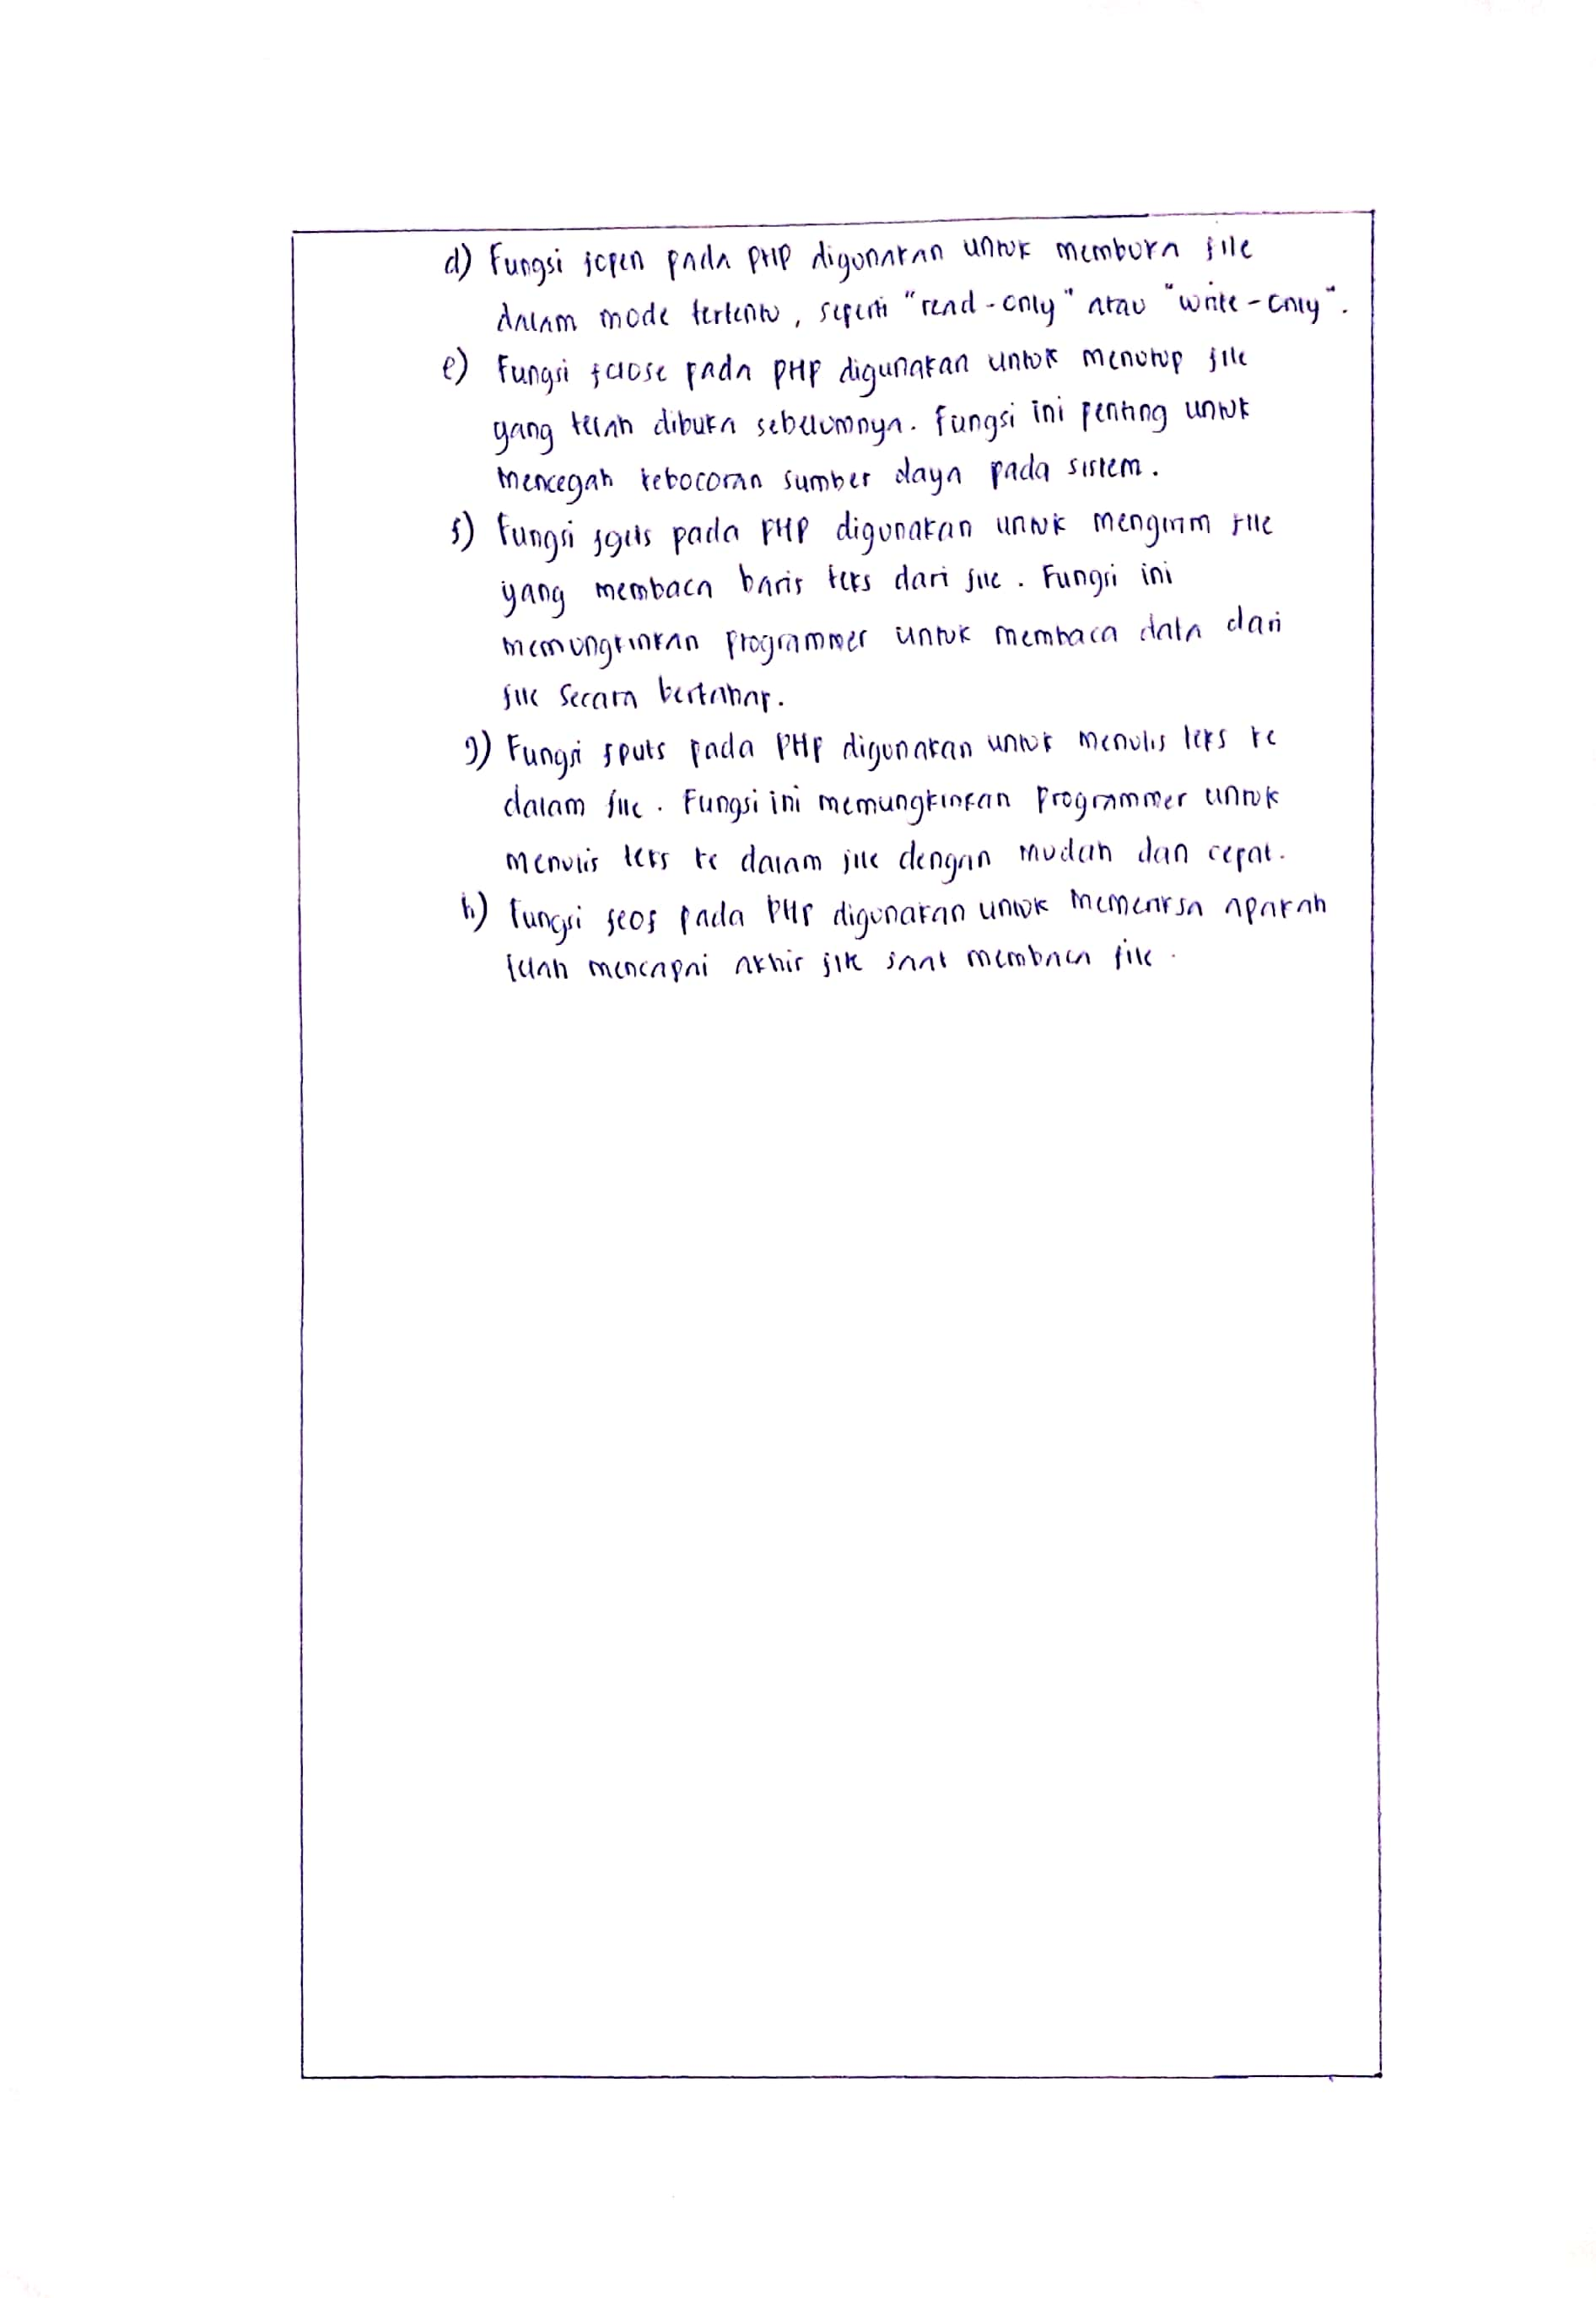 d) Fungsi fopen pada PHP digunakan untuk membuka file
dalam mode tertentu, seperti "read-only" atau "write-only".
e) Fungsi fclose pada PHP digunakan untuk menutup file
yang telah dibuka sebelumnya. Fungsi ini penting untuk
mencegah kebocoran sumber daya pada sistem.
f) Fungsi fgets pada PHP digunakan untuk mengirim file
yang membaca baris teks dari file. Fungsi ini
memungkinkan programmer untuk membaca data dari
file secara bertahap.
g) Fungsi fputs pada PHP digunakan untuk menulis teks ke
dalam file. Fungsi ini memungkinkan programmer untuk
menulis teks ke dalam file dengan mudah dan cepat.
h) Fungsi feof pada PHP digunakan untuk memeriksa apakah
telah mencapai akhir file saat membaca file.